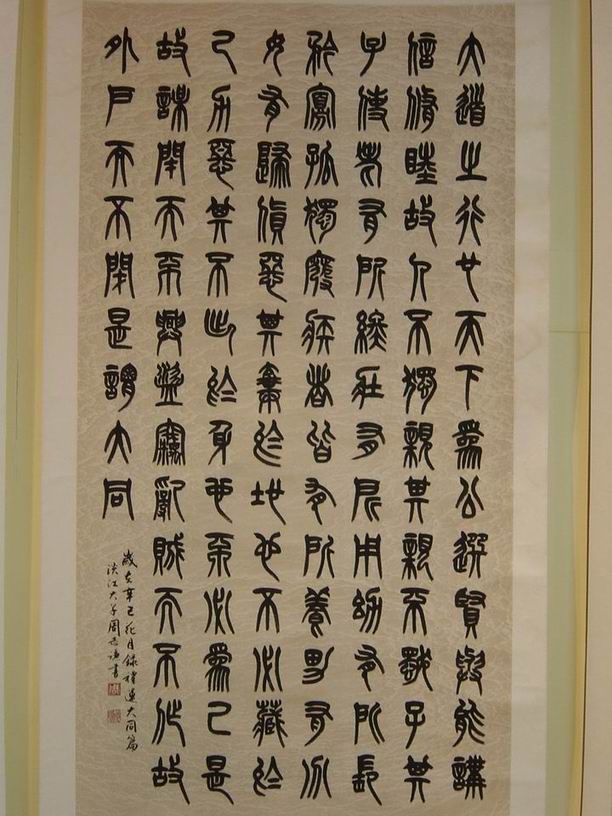 大道之行也天下爲公選賢與能講
信脩睦故人不獨親其親不獨子其
子使老有所終壯有所用幼有所長
矜寡孤獨廢疾者皆有所養男有分
女有歸貨惡其棄於地也不必藏於
己力惡其不出於身也不必爲己是
故謀閉而不興盜竊亂賊而不作故
外戶而不閉是謂大同
歲在辛巳花月錄禮運大同篇
淡江大學周志書